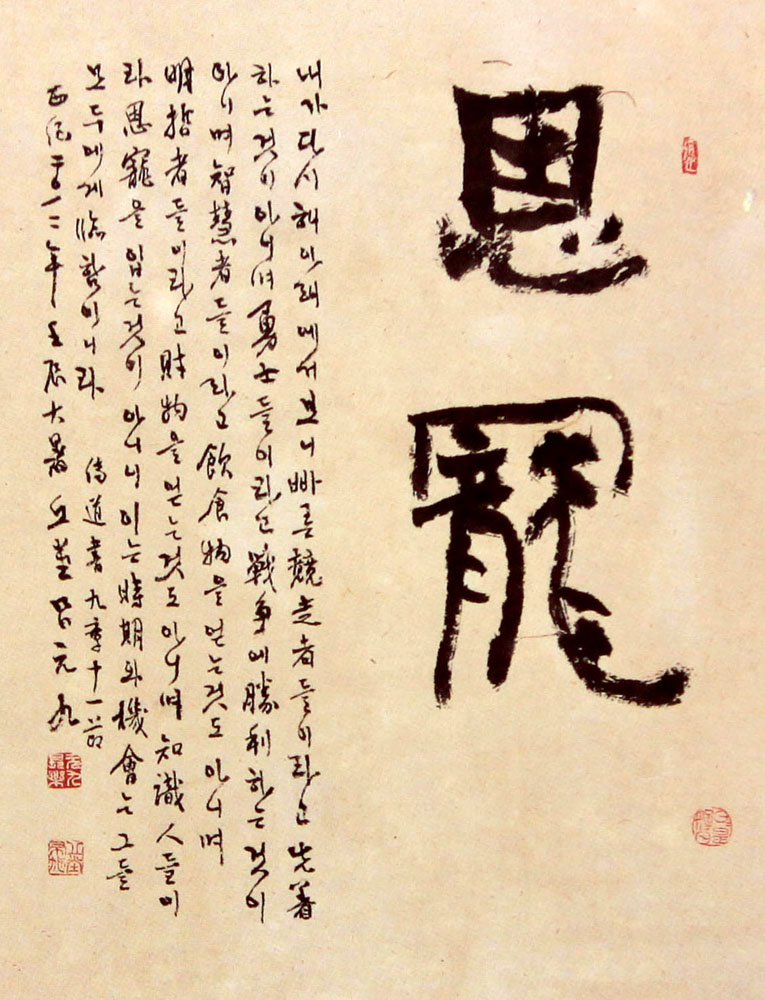 恩寵
내가 다시 해 아래에서 보니 빠른 競走者들이라고 先着
하는 것이 아니며 勇士들이라고 戰爭에 勝利하는 것이
아니며 智慧者들이라고 飮食物을 얻는것도 아니며
明哲者들이라고 財物을 얻는것도 아니며 知識人들이
라 恩寵을 입는것이 아니니 이는 時期와 機會는 그들
모두에게 臨함이니라 傳道書 九章 十一節
西紀二〇一二年 壬辰 大暑 丘堂 呂元九